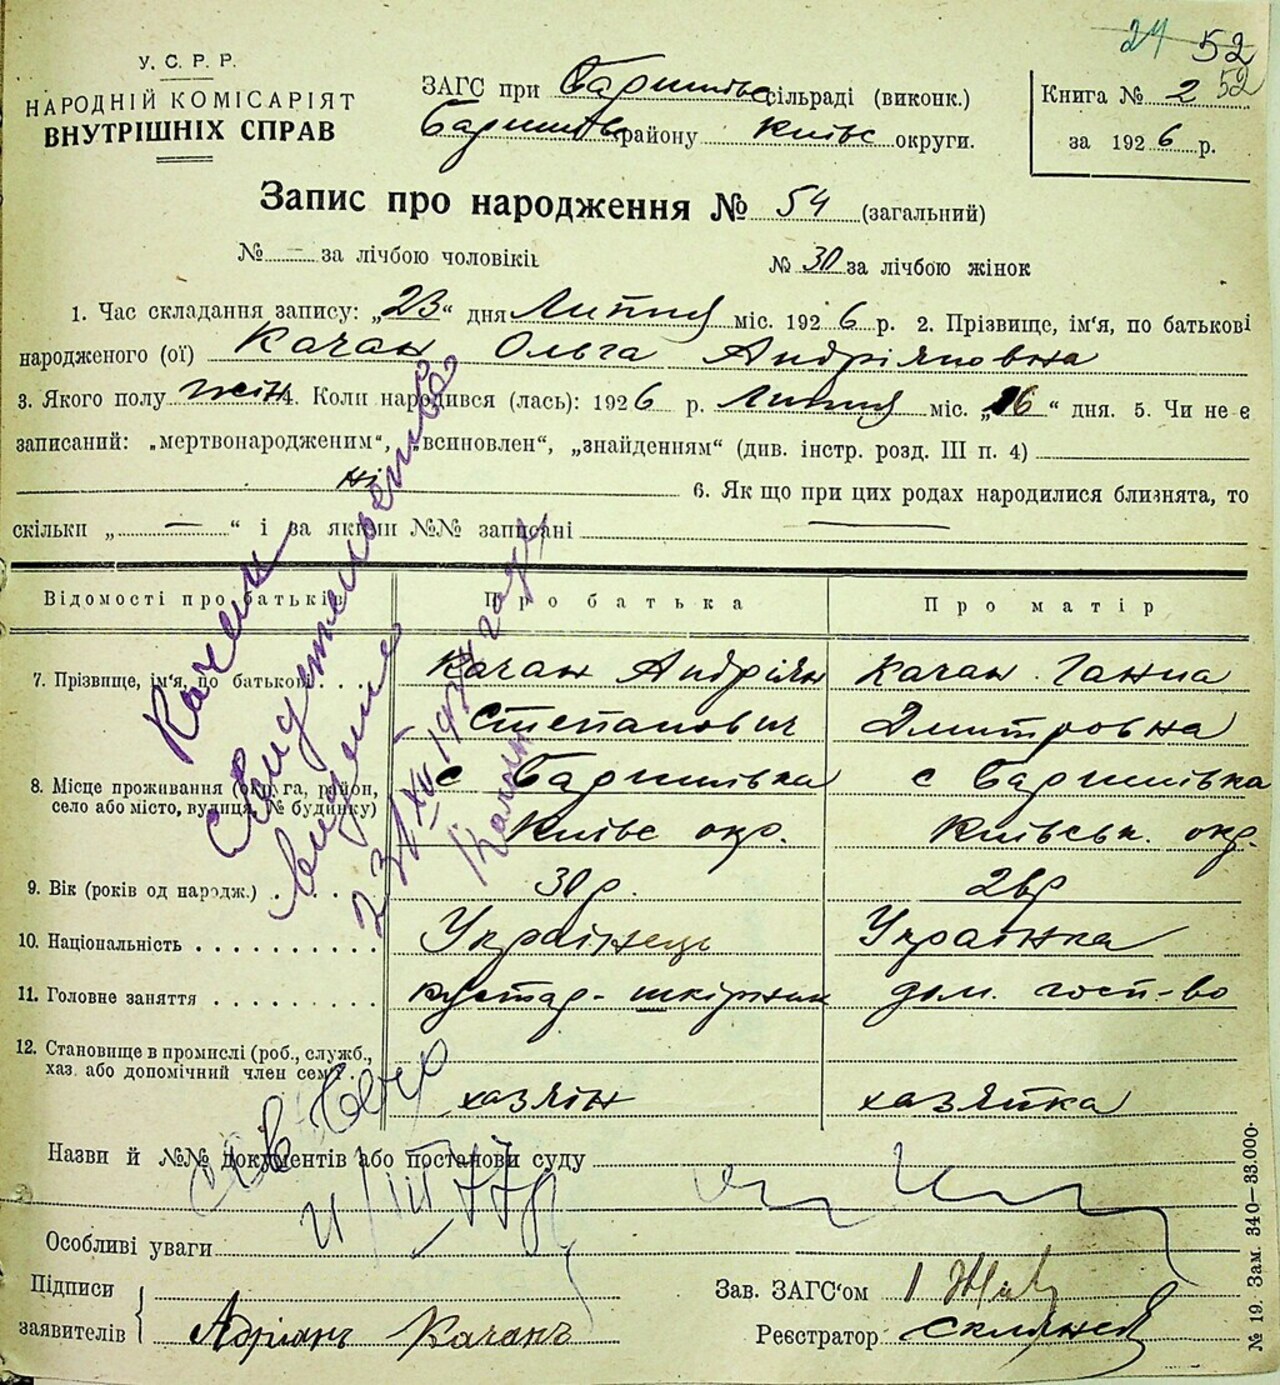 24 52
52
У. С. Р. Р.
НАРОДНІЙ КОМІСАРІЯТ
ВНУТРІШНІХ СПРАВ
ЗАГС при Баришівс сільраді (виконк.)
Баришів району Київс округи.
Книга № 2
за 1926 р.
Запис про народження № 54 (загальний)
№ – за лічбою чоловіків
№ 30 за лічбою жінок
1. Час складання запису: „23“ дня Липня міс. 1926 р. 2. Прізвище, ім'я, по батькові
народженого (ої) Качан Ольга Андріяновна
3. Якого полу жін 4. Коли народився (лась): 1926 р. Липня міс. „16“ дня. 5. Чи не є
записаний: „мертвонародженим“, „всиновлен“, „знайденням“ (див. інстр. розд. III п. 4)
ні 6. Як що при цих родах народилися близнята, то
скільки „ — “ і за якими №№ записані —
Відомості про батьків Про батька Про матір
7. Прізвище, ім'я, по батькові . . . Качан Андріян Качан Ганна
Степанович Дмитровна
8. Місце проживання (округа, район, с Баришівка с Баришівка
село або місто, вулиця, № будинку) Київс окр. Київськ. окр.
9. Вік (років од народж.) . . . . 30 р. 28р
10. Національність . . . . . . . . . Українець Українка
11. Головне заняття . . . . . . . . . кустар-шкірник дом. госп-во
12. Становище в промислі (роб., служб.,
хаз. або допомічний член сем'ї . .
хазяїн хазяйка
Качан
Свидетельство
видано
23/XII 197 года
Назви й №№ документів або постанови суду
4/III 77р
Особливі уваги
Підписи
заявителів
Адріанъ Качанъ
Зав. ЗАГС'ом
Реєстратор
№ 19. Зам. 340—33.000.